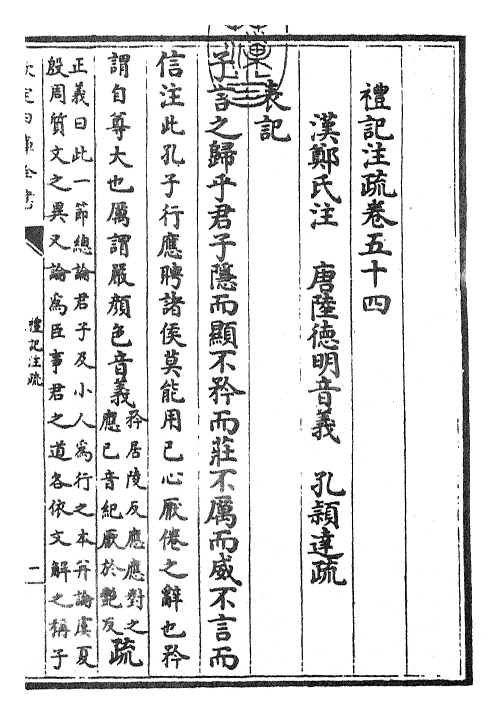 禮記注疏卷五十四
漢鄭氏注 唐陸德明音義 孔穎達疏
表記
子言之歸乎君子隱而顯不矜而莊不厲而威不言而
信注此孔子行應聘諸侯莫能用己心厭倦之辭也矜
謂自尊大也厲謂嚴顏色音義矜居陵反應應對之
應已音紀厭於艷反疏
正義曰此一節總論君子及小人為行之本并論虞夏
殷周質文之異又論為臣事君之道各依文解之稱子
欽定四庫全書
禮記注疏
一